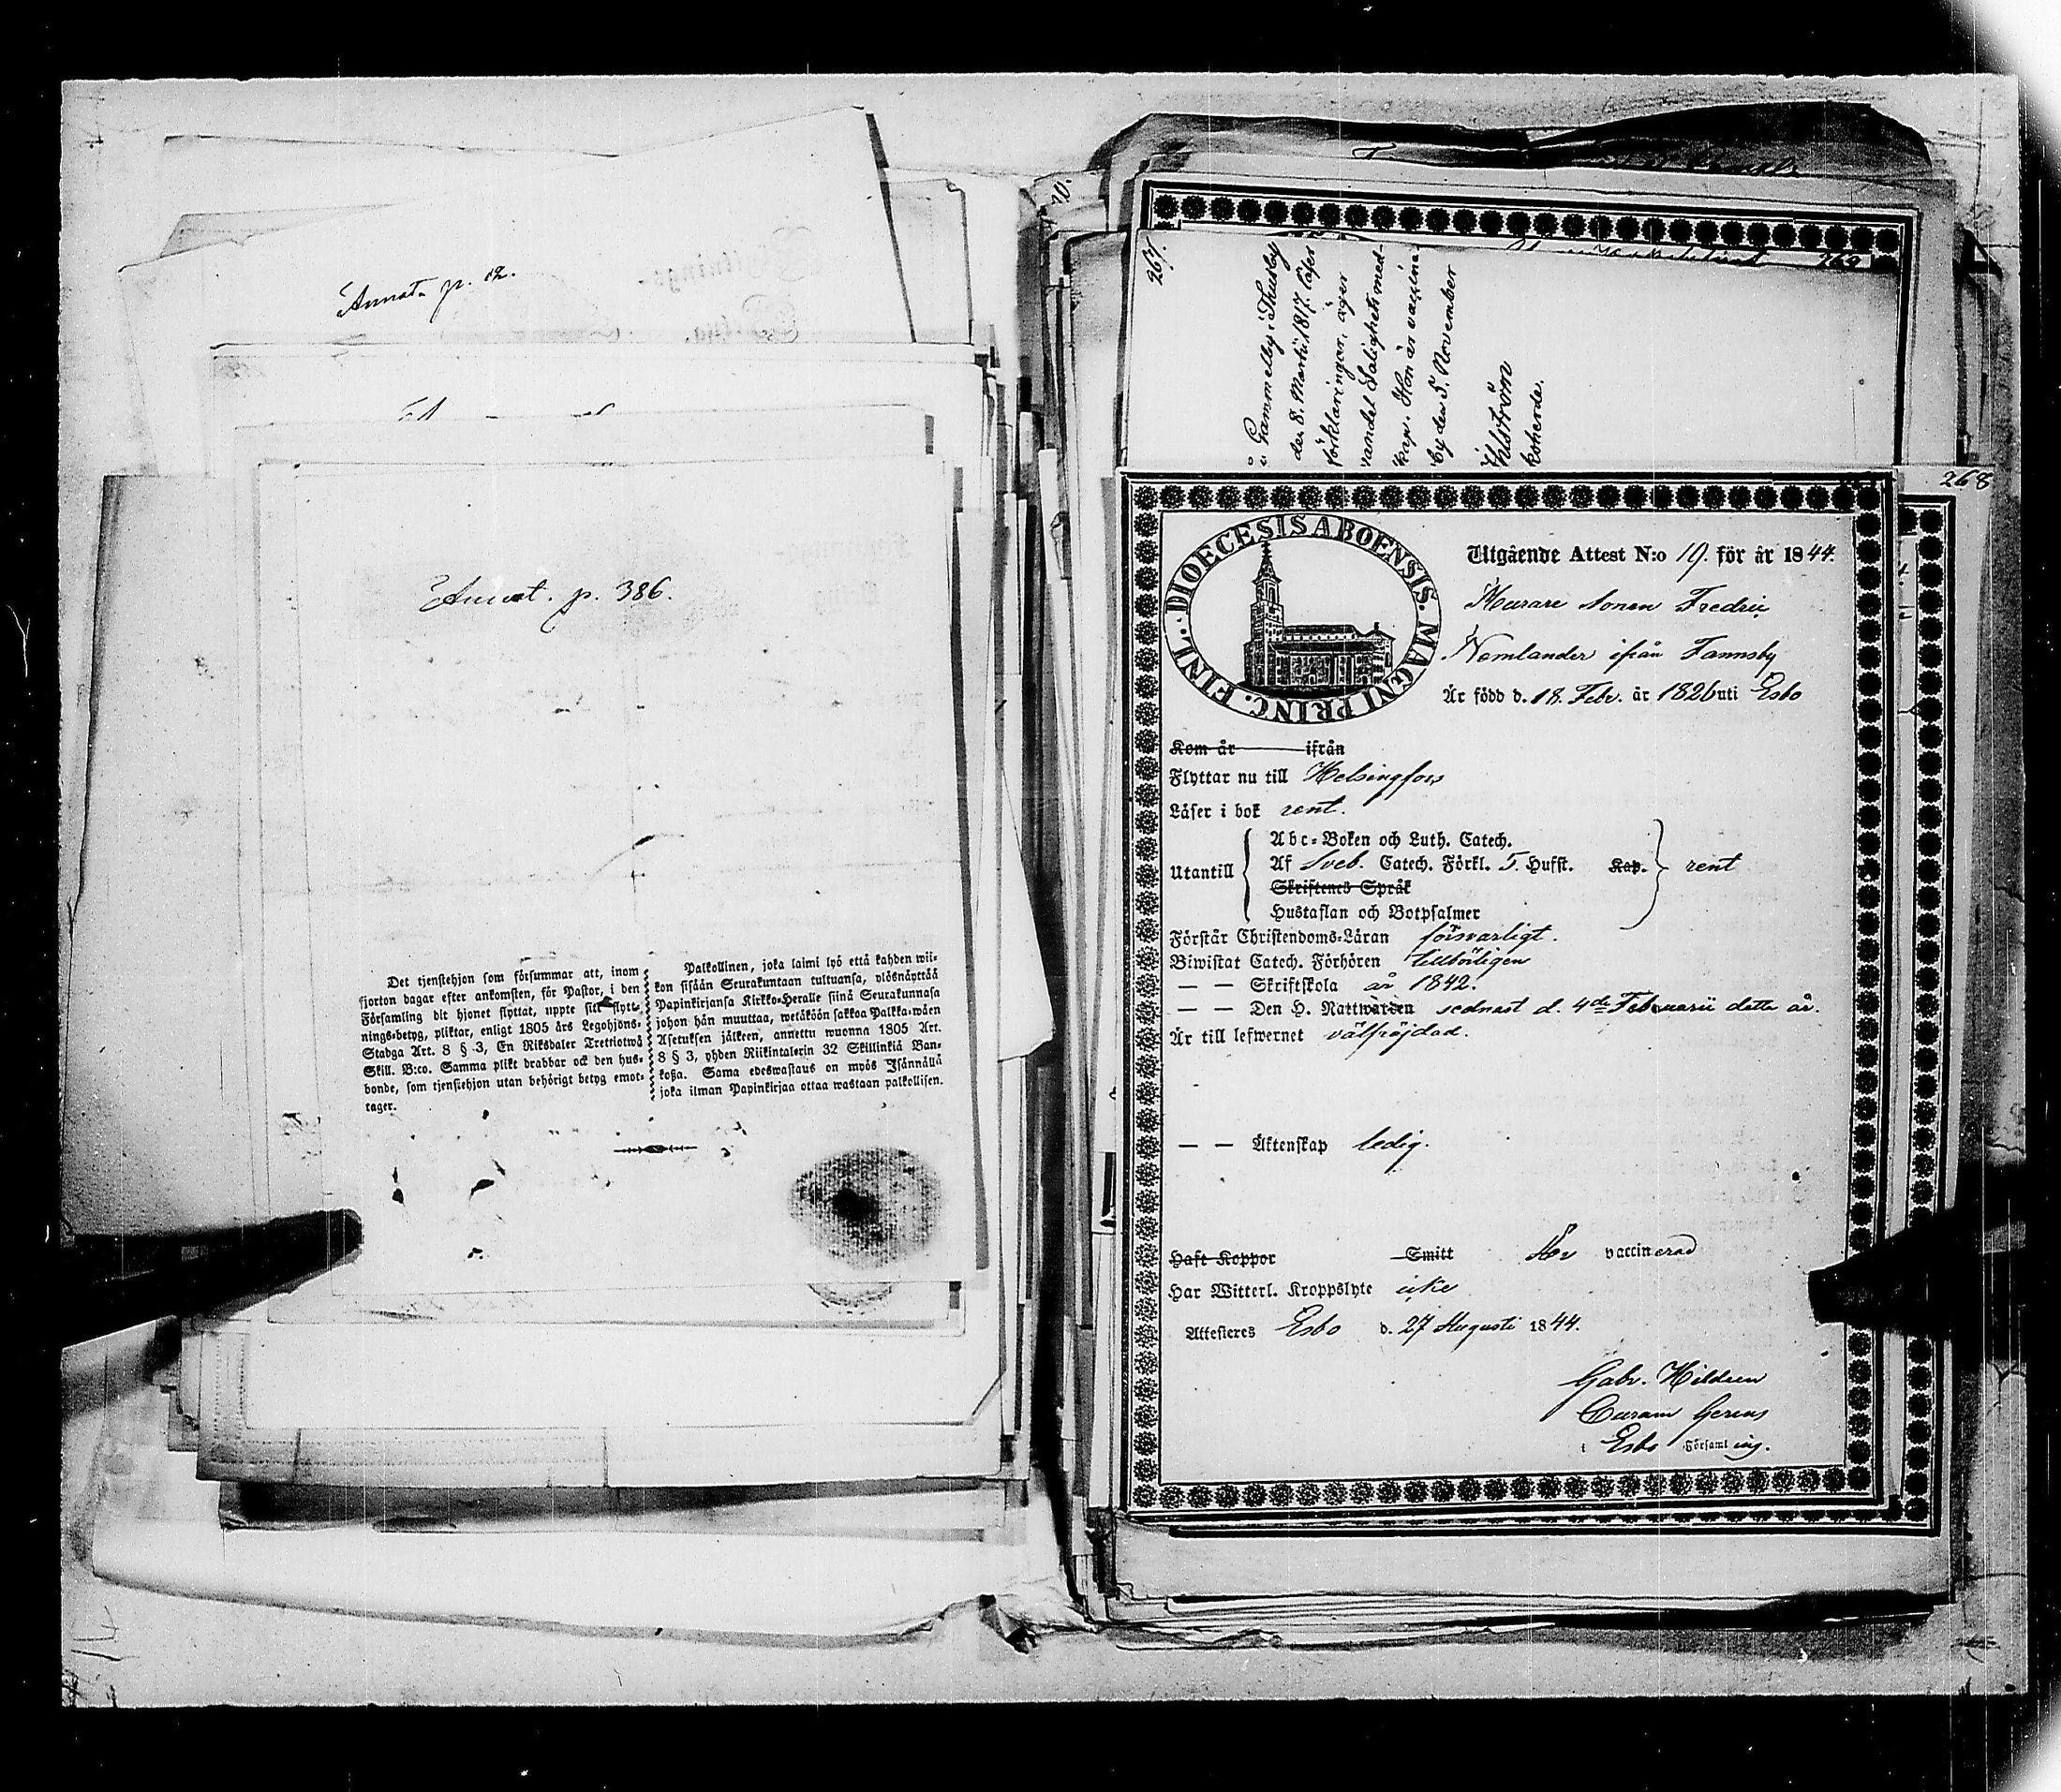 Annot. p. 12.
Annot. p. 386.
Det tjenstehjon som försummar att, inom
fjorton dagar efter ankomsten, för Pastor, i den
Församling dit hjonet flyttat, uppte sitt flytt-
nings-betyg, pliktar, enligt 1805 års Legohjons-
Stadga Art. 8 § 3, En Riksdaler Trettiotwå
Skill. B:co. Samma plikt drabbar ock den hus-
bonde, som tjenstehjon utan behörigt betyg emot-
tager.
Palkollinen, joka laimi lyö että kahden wii-
kon sisään Seurakuntaan tultuansa, ylösnäyttää
Papinkirjansa Kirkko-Heralle siinä Seurakunnasa
johon hän muuttaa, wetäköön sakkoa Palkka-wäen
Asetuksen jälkeen, annettu wuonna 1805 Art.
8 § 3, yhden Riikintalerin 32 Skillinkiä Ban-
koßa. Sama edeswastaus on myös Isännällä
joka ilman Papinkirjaa ottaa wastaan palkollisen.
269
267.
i Gammelby i Thusby
den 8. Martii 1817. läser
förklaringar, äger
vandel Salighets med-
kap. Hon är vaccine-
by den 5. November
hlström
koherde.
268
FINL. DIOECESIS ABOENSIS. MAGNI PRINC.
Utgående Attest N:o 19. för år 1844.
Murare sonen Fredric
Nemlander ifrån Fannsby
Är född d. 18. Febr. år 1826 uti Esbo
Kom år ifrån
Flyttar nu till Helsingfors
Läser i bok rent.
Utantill
Abc-Boken och Luth. Catech.
Af Sveb. Catech. Förkl. 5. Hufst. Kap. rent
Skriftenes Språk
Hustaflan och Botpsalmer
Förstår Christendoms-Läran försvarligt.
Biwistat Catech. Förhören tillbörligen
— — Skriftskola år 1842.
— — Den H. Nattwarden sednast d. 4de Februarii detta år.
Är till lefwernet välfrejdad.
— — Äktenskap ledig.
Haft Koppor Smitt Är vaccinerad
Har Witterl. Kroppslyte icke
Attesteres Esbo d. 27 Augusti 1844.
Gabr. Hildeen
Curam Gerens
i Esbo Församling.